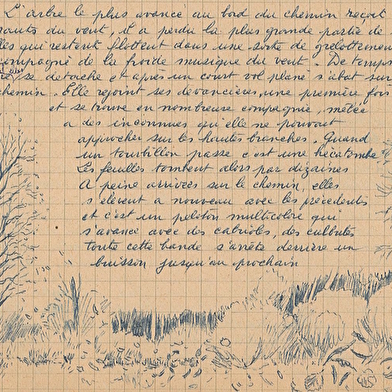 L'arbre le plus avancé au bord du chemin reçoit
du vent, il a perdu la plus grande partie de
qui restent flottent dans une sorte de grelottement
de la froide musique du vent. De temps
se détache et après un court vol plané s'abat sur
chemin. Elle rejoint ses devancières, une première fois
et se trouve en nombreuse compagnie, mêlée
a des inconnues qu'elle ne pouvait
approcher sur les hautes branches. Quand
un tourbillon passe c'est une hécatombe
Les feuilles tombent alors par dizaines
A peine arrivées sur le chemin, elles
s'élèvent a nouveau avec les précédents
et c'est un peloton multicolore qui
s'avance avec des cabrioles, des culbutes
toute cette bande s'arrête derrière un
buisson jusqu'au prochain